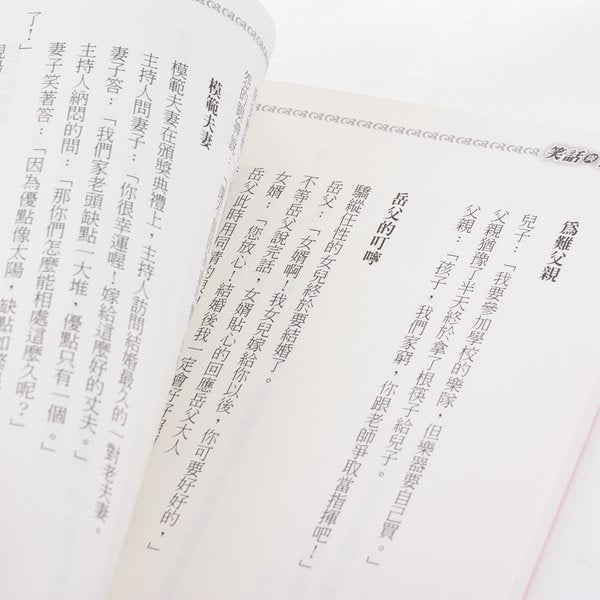 笑話
爲難父親
兒子:「我要參加學校的樂隊,但樂器要自己買。」
父親猶豫了半天終於拿了根筷子給兒子。
父親:「孩子,我們家窮,你跟老師爭取當指揮吧!」
岳父的叮嚀
驕縱任性的女兒終於要結婚了。
岳父:「女婿啊!我女兒嫁給你以後,你可要好好的,」
不等岳父說完話,女婿貼心的回應岳父大人
女婿:「您放心!結婚後我一定會好好
岳父此時用同情的
模範夫妻
模範夫妻在頒獎典禮上,主持人訪問結婚最久的一對老夫妻。
主持人問妻子:「你很幸運喔!嫁給這麼好的丈夫。」
妻子答:「我們家老頭缺點一大堆,優點只有一個。」
主持人納悶的問:「那你們怎麼能相處這麼久呢?」
妻子笑著答:「因為優點像太陽,缺點如繁
了!」